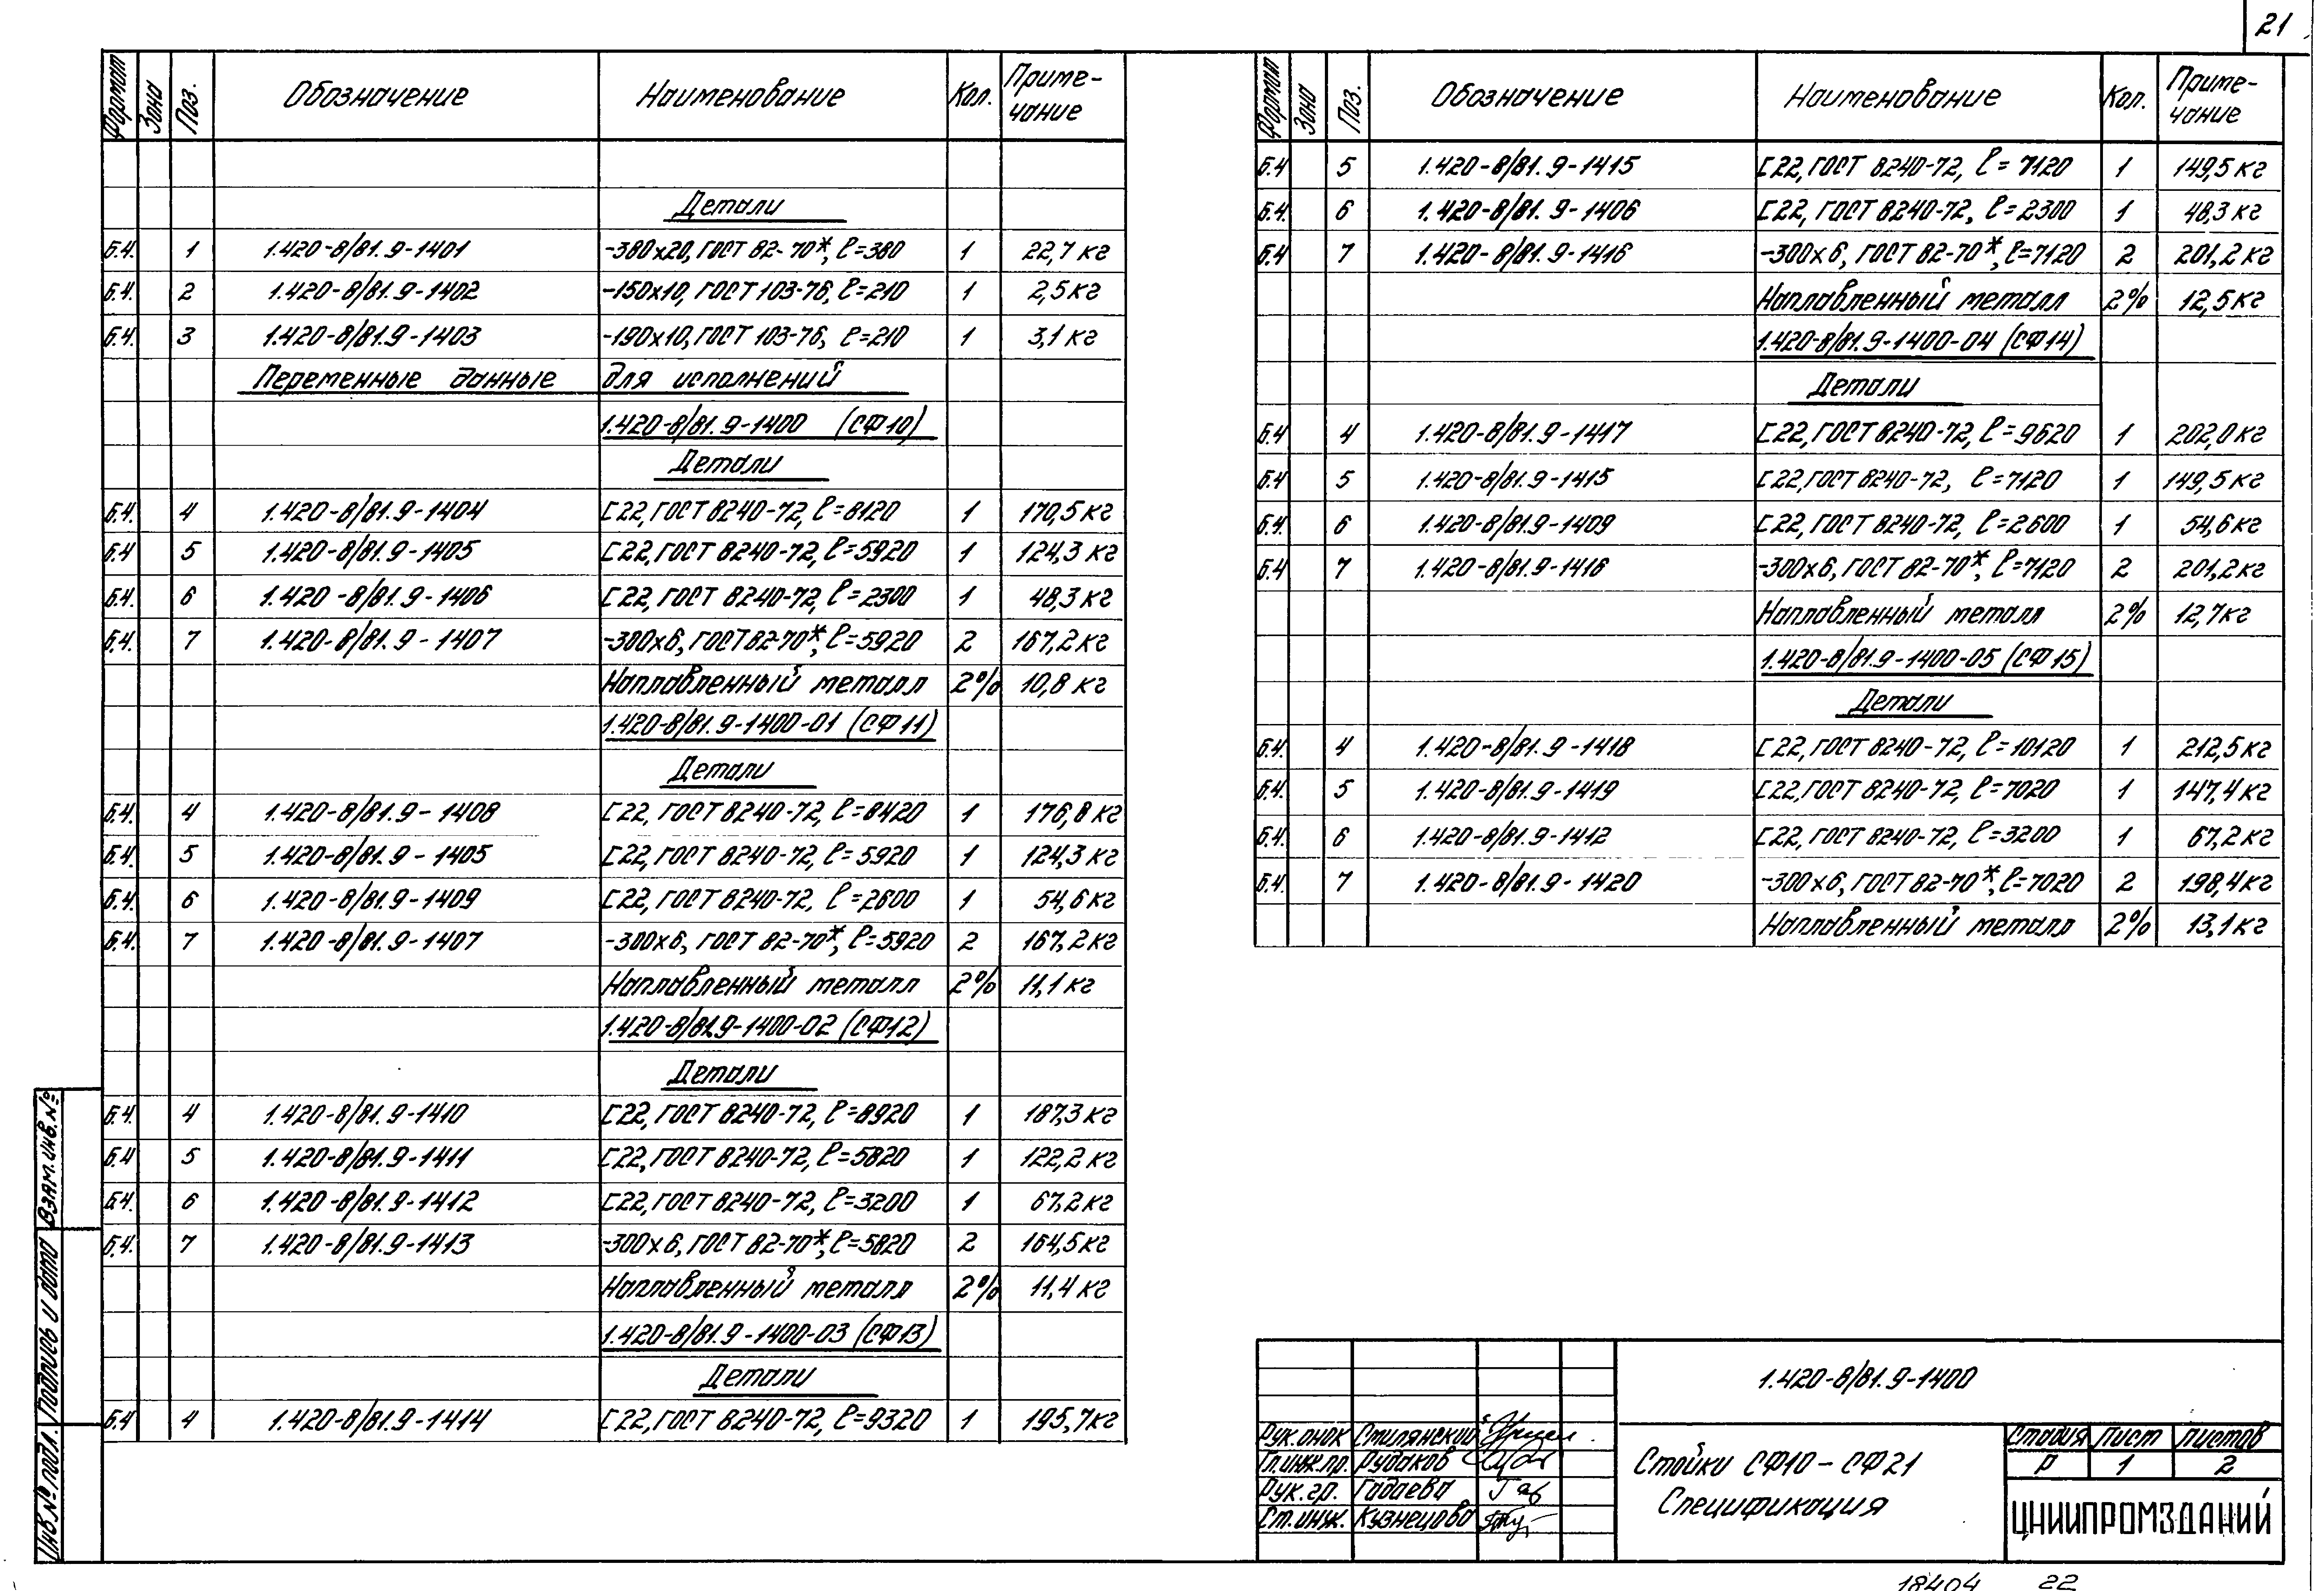 21
Формат Зона Поз. Обозначение Наименование Кол. Приме-
чание
Детали
Б.4. 1 1.420-8/81.9-1401 -380x20, ГОСТ 82-70*, ℓ=380 1 22,7 кг
Б.4. 2 1.420-8/81.9-1402 -150x10, ГОСТ 103-76, ℓ=210 1 2,5 кг
Б.4. 3 1.420-8/81.9-1403 -190x10, ГОСТ 103-76, ℓ=210 1 3,1 кг
Переменные данные для исполнений
1.420-8/81.9-1400 (СФ10)
Детали
Б.4. 4 1.420-8/81.9-1404 [22, ГОСТ 8240-72, ℓ=8120 1 170,5 кг
Б.4 5 1.420-8/81.9-1405 [22, ГОСТ 8240-72, ℓ=5920 1 124,3 кг
Б.4. 6 1.420-8/81.9-1406 [22, ГОСТ 8240-72, ℓ=2300 1 48,3 кг
Б.4. 7 1.420-8/81.9-1407 -300x6, ГОСТ 82-70*, ℓ=5920 2 167,2 кг
Наплавленный металл 2% 10,8 кг
1.420-8/81.9-1400-01 (СФ11)
Детали
Б.4. 4 1.420-8/81.9-1408 [22, ГОСТ 8240-72, ℓ=8420 1 176,8 кг
Б.4. 5 1.420-8/81.9-1405 [22, ГОСТ 8240-72, ℓ=5920 1 124,3 кг
Б.4. 6 1.420-8/81.9-1409 [22, ГОСТ 8240-72, ℓ=2600 1 54,6 кг
Б.4. 7 1.420-8/81.9-1407 -300x6, ГОСТ 82-70*, ℓ=5920 2 167,2 кг
Наплавленный металл 2% 11,1 кг
1.420-8/81.9-1400-02 (СФ12)
Детали
Б.4. 4 1.420-8/81.9-1410 [22, ГОСТ 8240-72, ℓ=8920 1 187,3 кг
Б.4 5 1.420-8/81.9-1411 [22, ГОСТ 8240-72, ℓ=5820 1 122,2 кг
Б.4. 6 1.420-8/81.9-1412 [22, ГОСТ 8240-72, ℓ=3200 1 67,2 кг
Б.4. 7 1.420-8/81.9-1413 -300x6, ГОСТ 82-70*, ℓ=5820 2 164,5 кг
Наплавленный металл 2% 11,4 кг
1.420-8/81.9-1400-03 (СФ13)
Детали
Б.4 4 1.420-8/81.9-1414 [22, ГОСТ 8240-72, ℓ=9320 1 195,7 кг
Формат Зона Поз. Обозначение Наименование Кол. Приме-
чание
Б.4 5 1.420-8/81.9-1415 [22, ГОСТ 8240-72, ℓ=7120 1 149,5 кг
Б.4. 6 1.420-8/81.9-1406 [22, ГОСТ 8240-72, ℓ=2300 1 48,3 кг
Б.4 7 1.420-8/81.9-1416 -300x6, ГОСТ 82-70*, ℓ=7120 2 201,2 кг
Наплавленный металл 2% 12,5 кг
1.420-8/81.9-1400-04 (СФ14)
Детали
Б.4 4 1.420-8/81.9-1417 [22, ГОСТ 8240-72, ℓ=9620 1 202,0 кг
Б.4 5 1.420-8/81.9-1415 [22, ГОСТ 8240-72, ℓ=7120 1 149,5 кг
Б.4. 6 1.420-8/81.9-1409 [22, ГОСТ 8240-72, ℓ=2600 1 54,6 кг
Б.4 7 1.420-8/81.9-1416 -300x6, ГОСТ 82-70*, ℓ=7120 2 201,2 кг
Наплавленный металл 2% 12,7 кг
1.420-8/81.9-1400-05 (СФ15)
Детали
Б.4. 4 1.420-8/81.9-1418 [22, ГОСТ 8240-72, ℓ=10120 1 212,5 кг
Б.4. 5 1.420-8/81.9-1419 [22, ГОСТ 8240-72, ℓ=7020 1 147,4 кг
Б.4. 6 1.420-8/81.9-1412 [22, ГОСТ 8240-72, ℓ=3200 1 67,2 кг
Б.4. 7 1.420-8/81.9-1420 -300x6, ГОСТ 82-70*, ℓ=7020 2 198,4 кг
Наплавленный металл 2% 13,1 кг
Взам. инв. №
Подпись и дата
Инв. № подл.
1.420-8/81.9-1400
Рук. онок Стилянский
Гл. инж. пр. Рудаков
Рук. гр. Гадаева
Ст. инж. Кузнецова
Стойки СФ10 - СФ21
Спецификация
Стадия Лист Листов
Р 1 2
ЦНИИПРОМЗДАНИЙ
18404 22